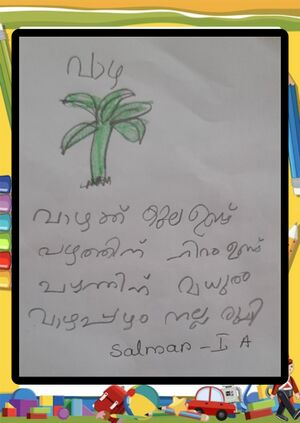 വാഴ
വാഴക്ക് ഇല ഉണ്ട്
പഴത്തിന് നിറം ഉണ്ട്
പഴത്തിന് മധുരം
വാഴപ്പഴം നല്ല രുചി
Salman - I A